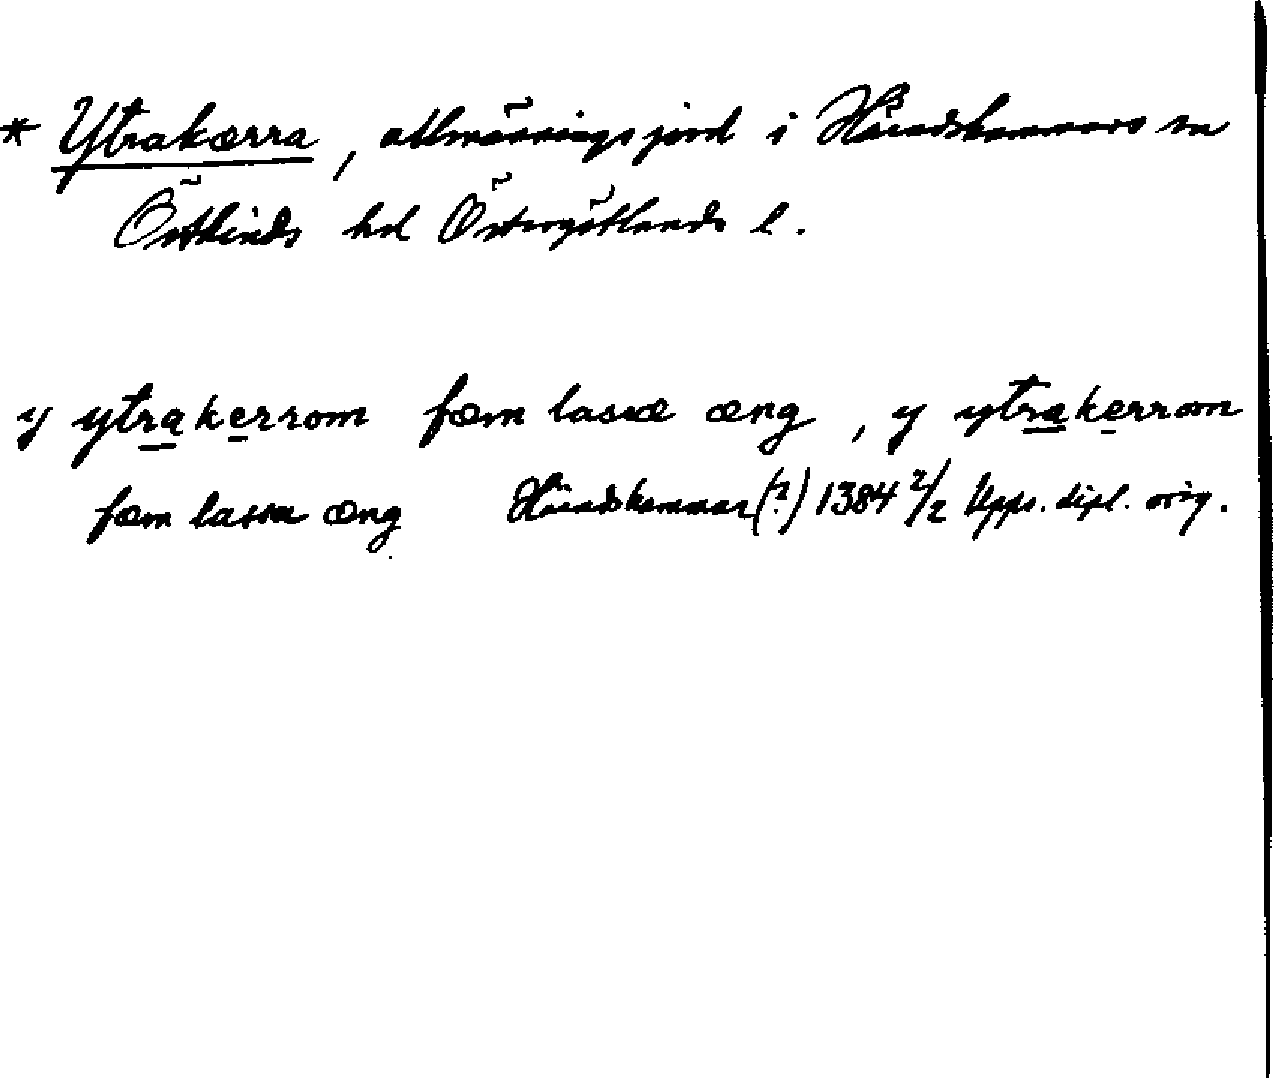 * Ytrakærra, allmänningsjord i Häradshammars sn
Östkinds hd Östergötlands l.
y ytrakerrom fæm lasse æng, y ytrakerrom
fæm lassa æng Häradshammar(?) 1384 2/2 Upps. dipl. orig.